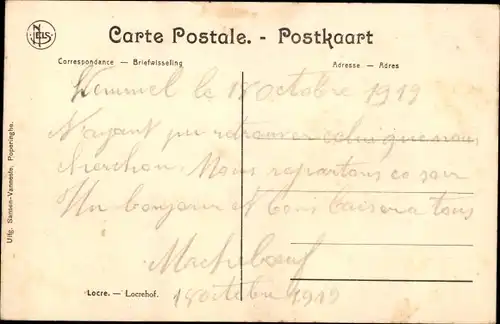 NELS
Carte Postale. - Postkaart
Correspondance — Briefwisseling
Adresse — Adres
Kemmel le 18 Octobre 1919
N'ayant pu retrouver celui que nous
cherchon. Nous repartons ce soir
Un bonjour et bons baisers a tous
18 octobre 1919
Locre. — Locrehof.
Uitg. Sansen-Vanneste, Poperinghe.